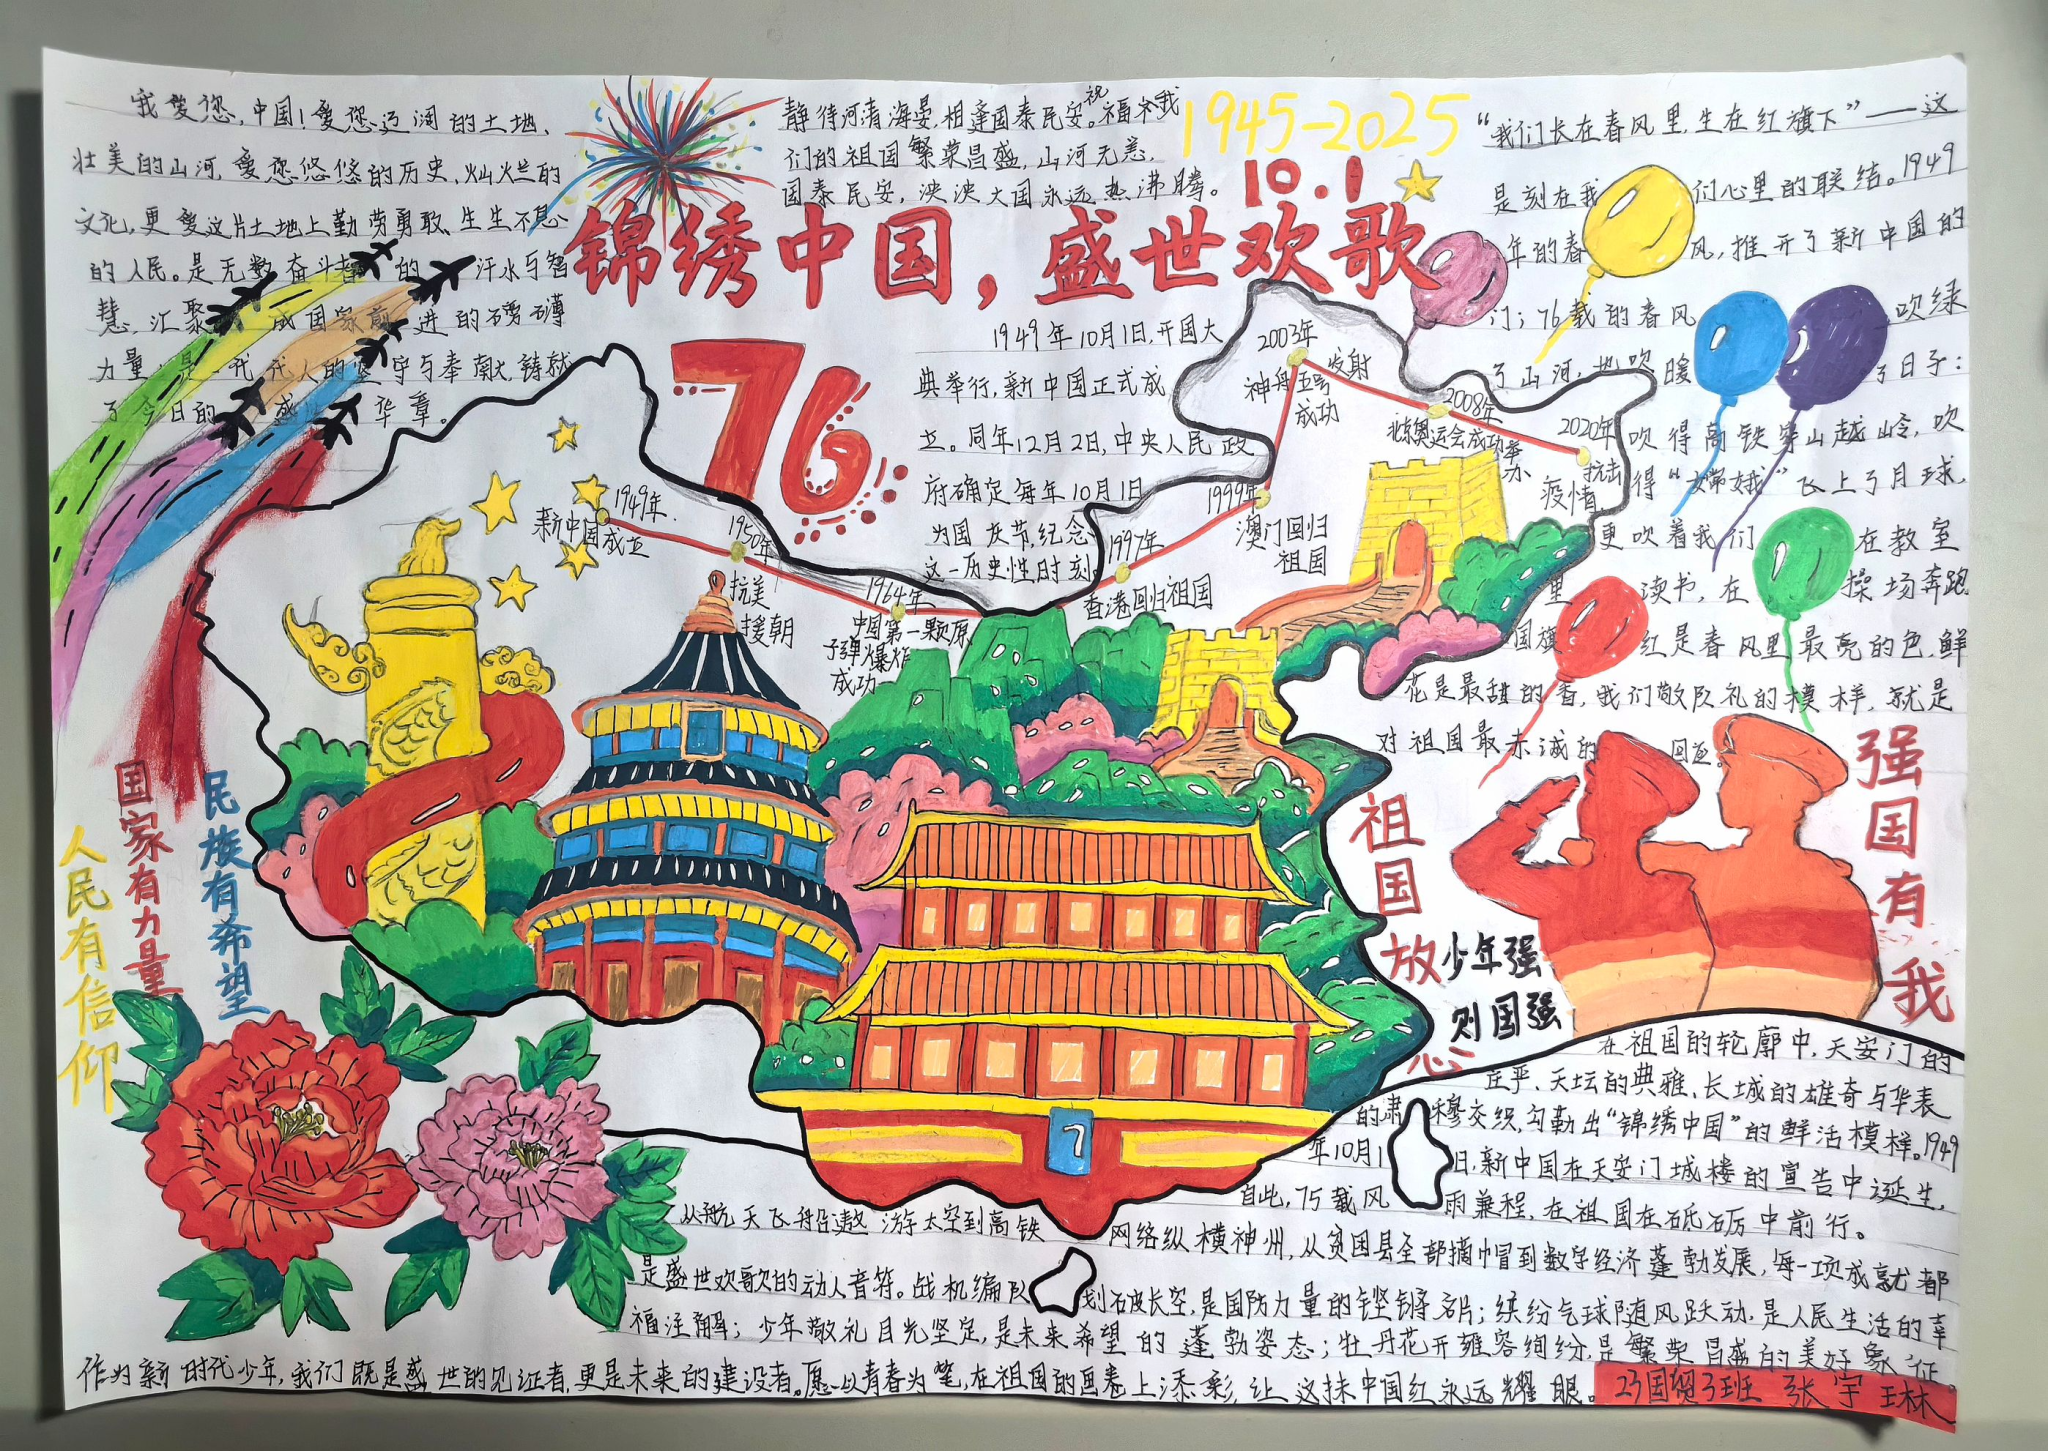 我爱您,中国!爱您辽阔的土地、
壮美的山河,爱您悠悠的历史、灿烂的
文化,更爱这片土地上勤劳勇敢、生生不息
的人民。是无数奋斗者的汗水与智
慧,汇聚成国家前进的磅礴
力量,是一代代人的坚守与奉献,铸就
了今日的盛世华章。
静待河清海晏,相逢国泰民安。祝福
我
们的祖国繁荣昌盛,山河无恙,
国泰民安,泱泱大国永远热沸腾。
1945-2025
10.1
锦绣中国,盛世欢歌
76
1949年10月1日,开国大
典举行,新中国正式成
立。同年12月2日,中央人民政
府确定每年10月1日
为国庆节,纪念
这一历史性时刻
1949年.
新中国成立
1950年
抗美
援朝
1964年
中国第一颗原
子弹爆炸
成功
1997年
香港回归祖国
1999年
澳门回归
祖国
2003年
神舟五号
发射
成功
2008年
北京奥运会成功举
办
2020年
抗击
疫情
“我们长在春风里,生在红旗下”——这
是刻在我们心里的联结。1949
年的春风,推开了新中国的
门;76载的春风,吹绿
了山河,也吹暖了日子:
吹得高铁穿山越岭,吹
得“嫦娥”飞上了月球,
更吹着我们在教室
里读书,在操场奔跑
国旗红是春风里最亮的色,鲜
花是最甜的香,我们敬队礼的模样,就是
对祖国最赤诚的回应。
人民有信仰
国家有力量
民族有希望
祖国放心
强国有我
少年强
则国强
在祖国的轮廓中,天安门的
庄严、天坛的典雅、长城的雄奇与华表
的肃穆交织,勾勒出“锦绣中国”的鲜活模样。1949
年10月1日,新中国在天安门城楼的宣告中诞生,
自此,75载风雨兼程,在祖国在砥砺中前行。
从航天飞船遨游太空到高铁网络纵横神州,从贫困县全部摘巾冒到数字经济蓬勃发展,每一项成就都
是盛世欢歌的动人音符。战机编队划破长空,是国防力量的铿锵名片;缤纷气球随风跃动,是人民生活的幸
福注解;少年敬礼目光坚定,是未来希望的蓬勃姿态;牡丹花开雍容绚纷,是繁荣昌盛的美好象征。
作为新时代少年,我们既是盛世的见证者,更是未来的建设者。愿以青春为笔,在祖国的画卷上添彩,让这抹中国红永远耀眼。
23国贸3班 张宇琳